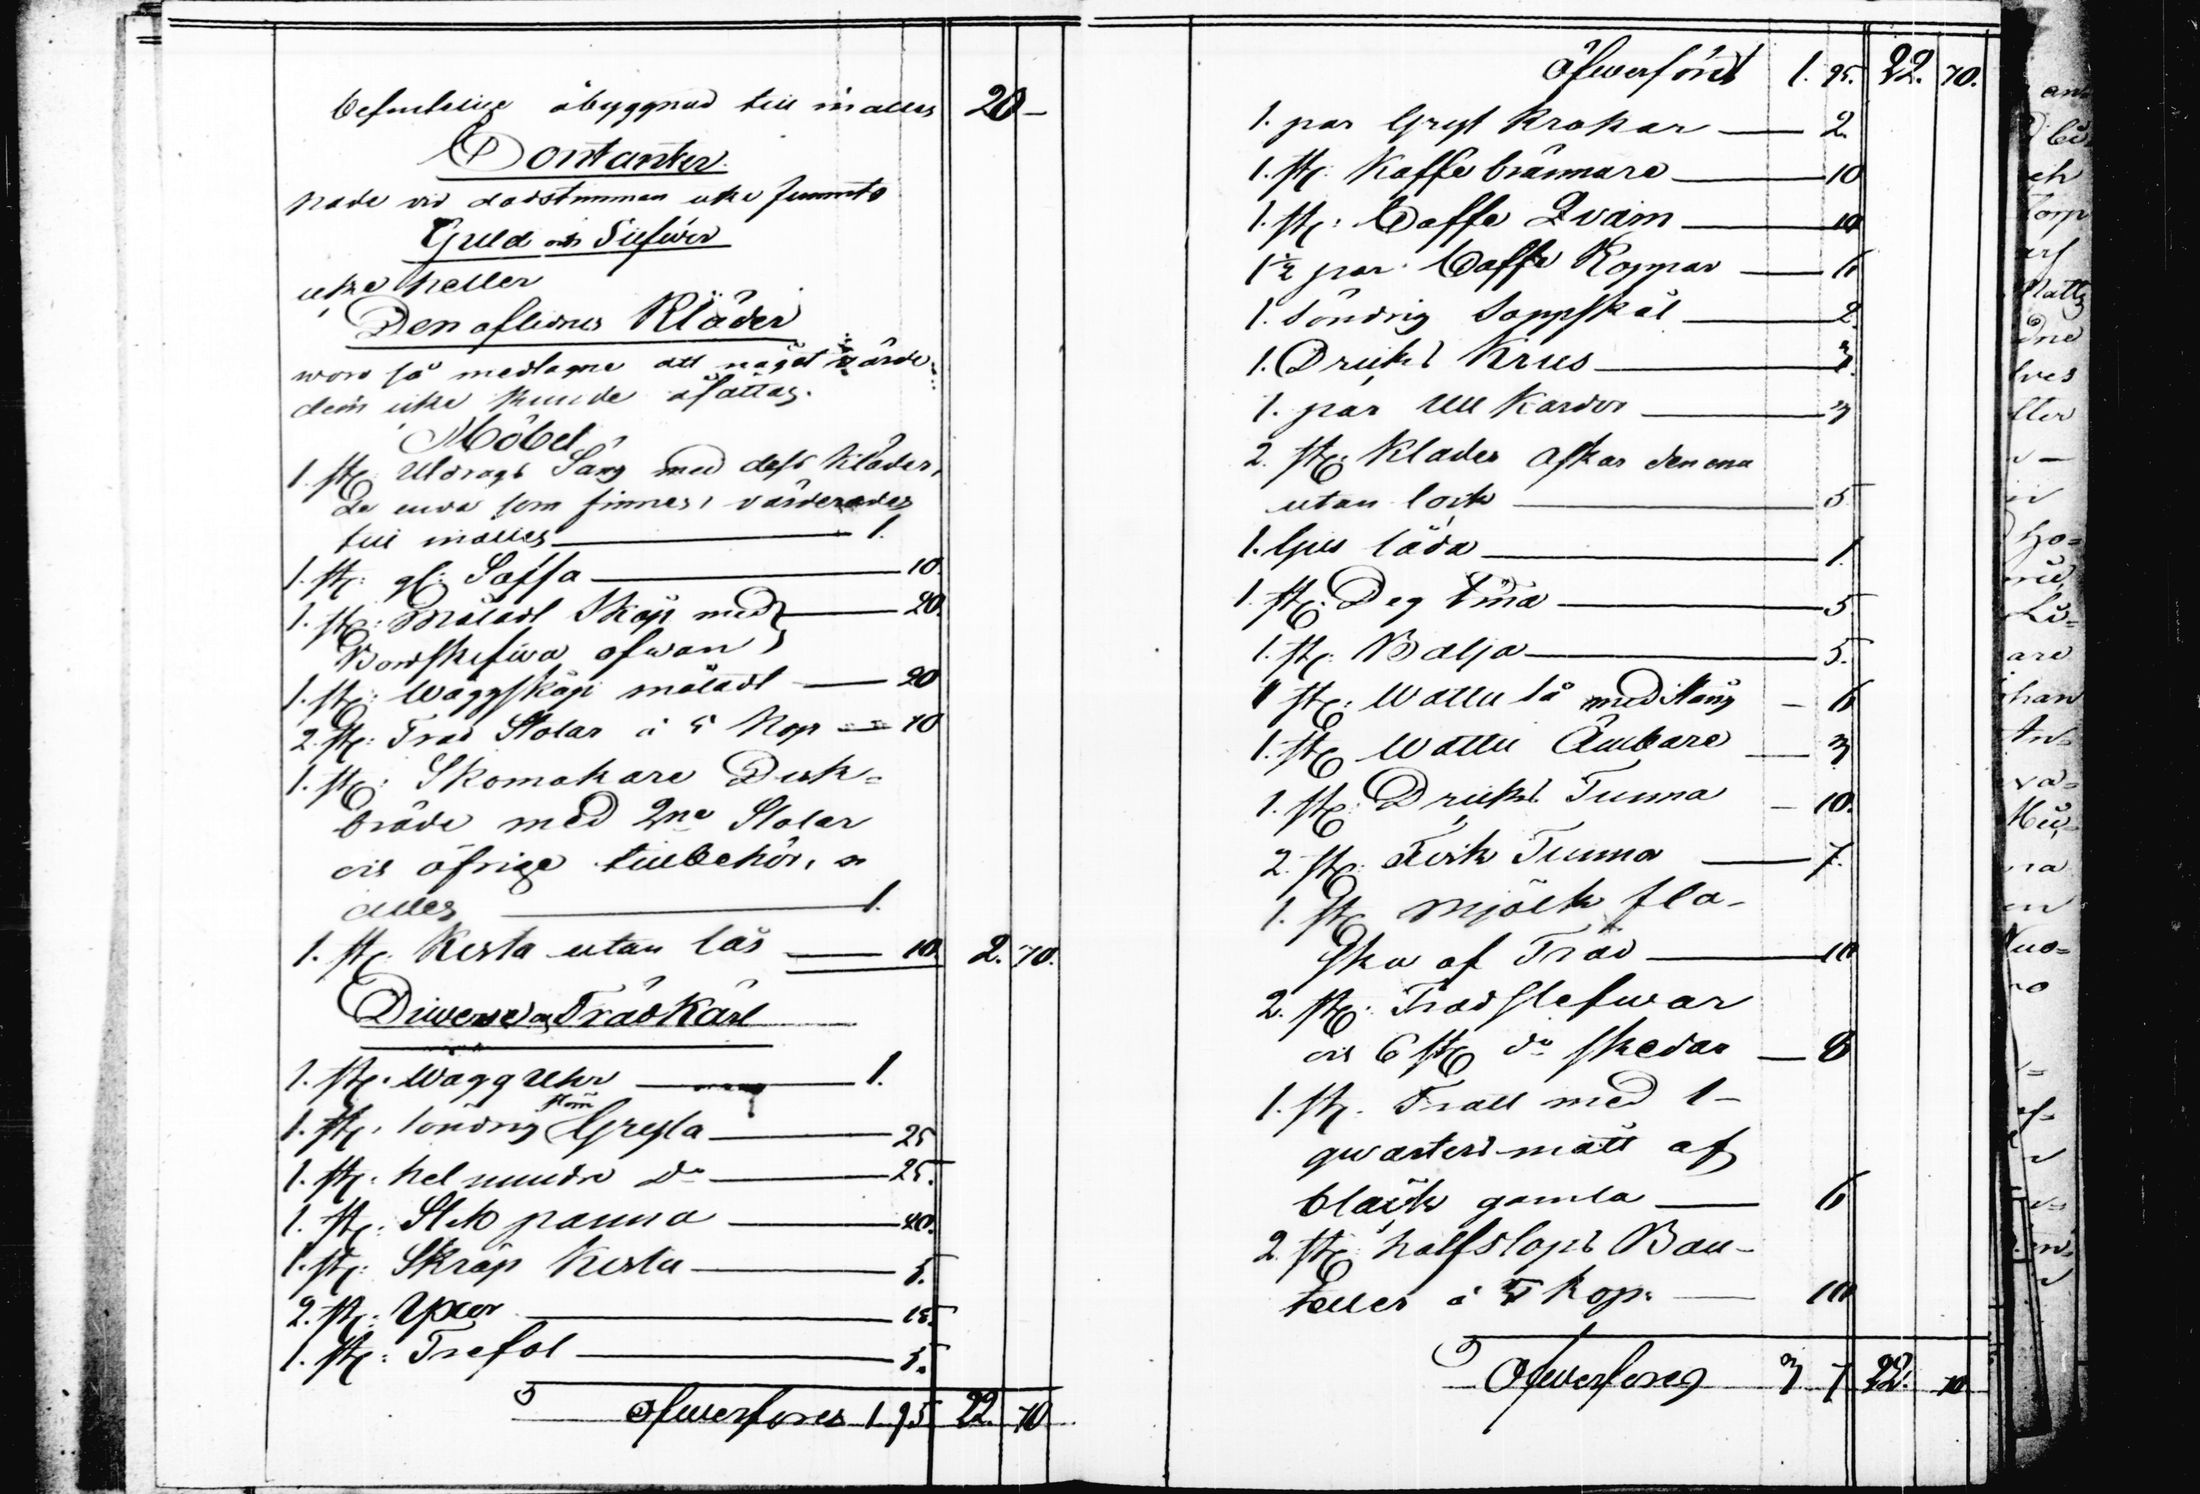 befinteliga åbyggnad till in alles 20 —
Contanter
hade vid dödstimman icke funnits
Guld och Silfwer
icke heller
Den aflidnes Kläder
woro så medtagne att något värde
dem icke kunde åsättas.
Möbel
1. st: Utdrags Säng med dess Kläder,
de enda som finnes, värderades
till in alles — 1.
1. st: gl: Saffa — 10.
1. st: Måladt Skåp med — 20.
Bordskifwa ofwan
1. st: Wäggskåp måladt — 20
2. st: Träd Stolar à 5 Kop — 10
1. st: Skomakare Disk-
bräde med 2ne Stolar
och öfrige tillbehör, in
alles — 1.
1. st: Kista utan lås — 10. 2. 70.
Diverse och Trädkäril
1. st: Wägg Uhr — 1.
1. st: söndrig stor Gryta — 25
1. st: hel mindre Do — 25.
1. st: Stek panna — 20.
1. st: Skräp Kista — 5.
2. st: Yxor — 15.
1. st: Trefot — 5.
Öfwerföres 1. 95. 22. 70
Öfwerfördt 1. 95. 22. 70.
1. par Gryt Krokar — 2.
1. st: Kaffe brännare — 10
1. st: Caffe Qvarn — 10
1½ par Caffe Koppar — 6
1. Söndrig Soppskål — 2.
1. Dricks Krus — 3.
1. par Ull Kardor — 3
2. st: Kläder askar den ena
utan lock — 5
1. ljus låda — 1.
1. st: Deg Tina — 5.
1. st: Balja — 5.
1 st: Wattu så med stång — 6
1. st: Wattu Ämbare — 3
1. st: Dricks Tunna — 10.
2. st: Fisk Tunnor — 7.
1. st: Mjölk fla-
ska af Träd — 10
2. st: Träd Slefwar
och 6 st: do skedar — 8
1. st: Tratt med 1
qwarters mått af
bläck gamla — 6
2. st: halfstops Bou-
teller à 5 kop: — 10
Öfwerföres 3 7 22. 70